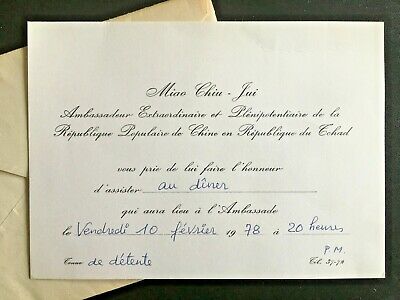 Miao Chiu - Jui
Ambassadeur Extraordinaire et Plénipotentiaire de la
République Populaire de Chine en République du Tchad
vous prie de lui faire l'honneur
d'assister au dîner
qui aura lieu à l'Ambassade
le Vendredi 10 février 1978 à 20 heures
P.M.
Tenue de détente Tél.